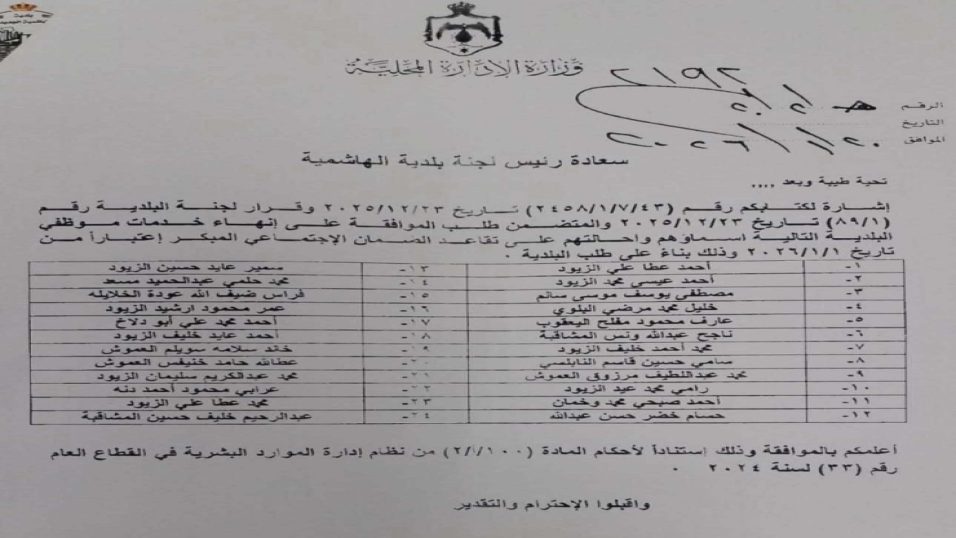 وزارة الإدارة المحلية
الرقم
٢١٩٢
التاريخ
الموافق ٢٠٢٦/١/٢٠
سعادة رئيس لجنة بلدية الهاشمية
تحية طيبة وبعد ,,,,
إشارة لكتابكم رقم (٢٤٥٨/١/٧/٤٣) تاريخ ٢٠٢٥/١٢/٢٣ وقرار لجنة البلدية رقم
(٨٩/١) تاريخ ٢٠٢٥/١٢/٢٣ والمتضمن طلب الموافقة على إنهاء خدمات موظفي
البلدية التالية اسماؤهم واحالتهم على تقاعد الضمان الإجتماعي المبكر إعتباراً من
تاريخ ٢٠٢٦/١/١ وذلك بناءً على طلب البلدية .
١- أحمد عطا علي الزيود ١٣- سمير عايد حسين الزيود
٢- أحمد عيسى محمد الزيود ١٤- محمد حلمي عبدالحميد مسعد
٣- مصطفى يوسف موسى سالم ١٥- فراس ضيف الله عودة الخلايله
٤- خليل محمد مرضي البلوي ١٦- عمر محمود ارشيد الزيود
٥- عارف محمود مفلح اليعقوب ١٧- أحمد محمد علي أبو دلاخ
٦- ناجح عبدالله ونس المشاقبة ١٨- أحمد عايد خليف الزيود
٧- محمد أحمد خليف الزيود ١٩- خالد سلامه سويلم العموش
٨- سامي حسين قاسم النابلسي ٢٠- عطالله حامد خنيفس العموش
٩- محمد عبداللطيف مرزوق العموش ٢١- محمد عبدالكريم سليمان الزيود
١٠- رامي محمد عيد الزيود ٢٢- عرابي محمود أحمد دنه
١١- أحمد صبحي محمد وخمان ٢٣- محمد عطا علي الزيود
١٢- حسام خضر حسن عبدالله ٢٤- عبدالرحيم خليف حسين المشاقبة
أعلمكم بالموافقة وذلك إستناداً لأحكام المادة (١٠٠/أ/٢) من نظام إدارة الموارد البشرية في القطاع العام
رقم (٣٣) لسنة ٢٠٢٤ .
واقبلوا الإحترام والتقدير